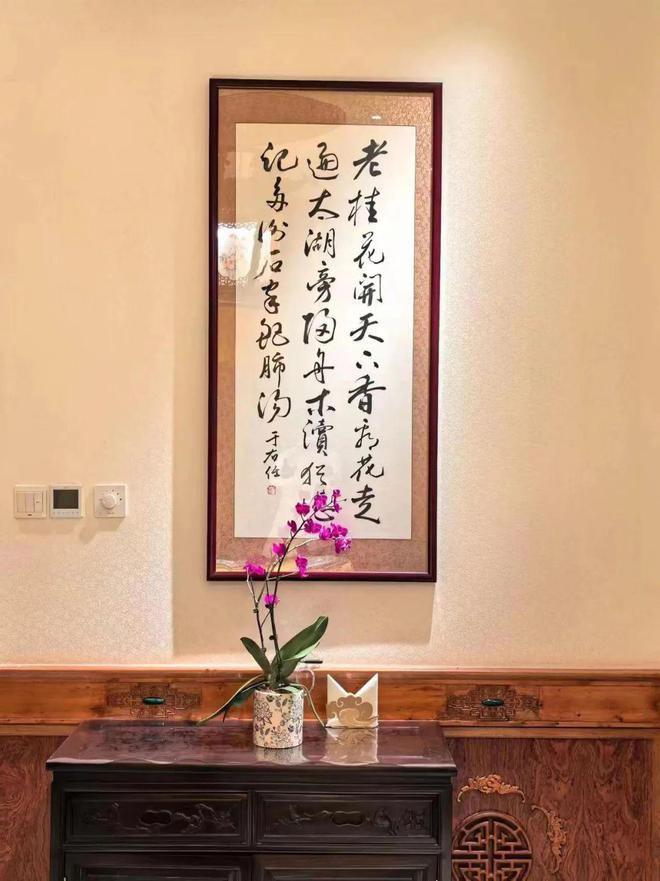 老桂花開天下香看花走
遍太湖旁歸舟木瀆猶
記多謝石家鲃肺湯
于右任